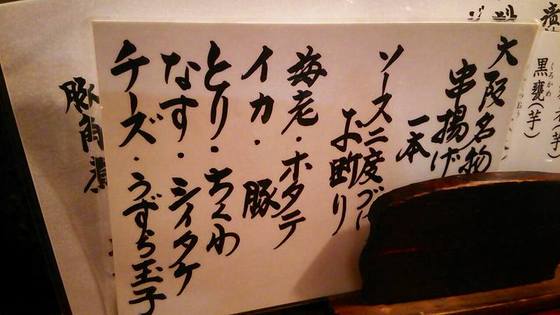 大阪名物
串揚げ
一本
ソース二度づけ
お断り
海老・ホタテ
イカ・豚
とり・ちくわ
なす・シイタケ
チーズ・うずら玉子
豚角煮
黒甕(芋)